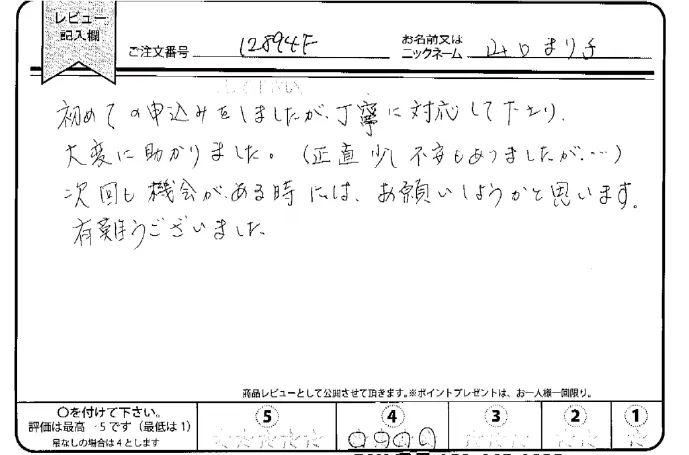 レビュー
記入欄
ご注文番号 12894F
お名前又は
ニックネーム 山口まり子
初めての申込みをしましたが、丁寧に対応して下さり、
大変に助かりました。(正直少し不安もありましたが…)
次回も機会がある時には、お願いしようかと思います。
有難うございました。
商品レビューとして公開させて頂きます。※ポイントプレゼントは、お一人様一回限り。
○を付けて下さい。
評価は最高→5です(最低は1)
星なしの場合は4とします
5 4 3 2 1
☆☆☆☆☆ ☆☆☆☆ ☆☆☆ ☆☆ ☆